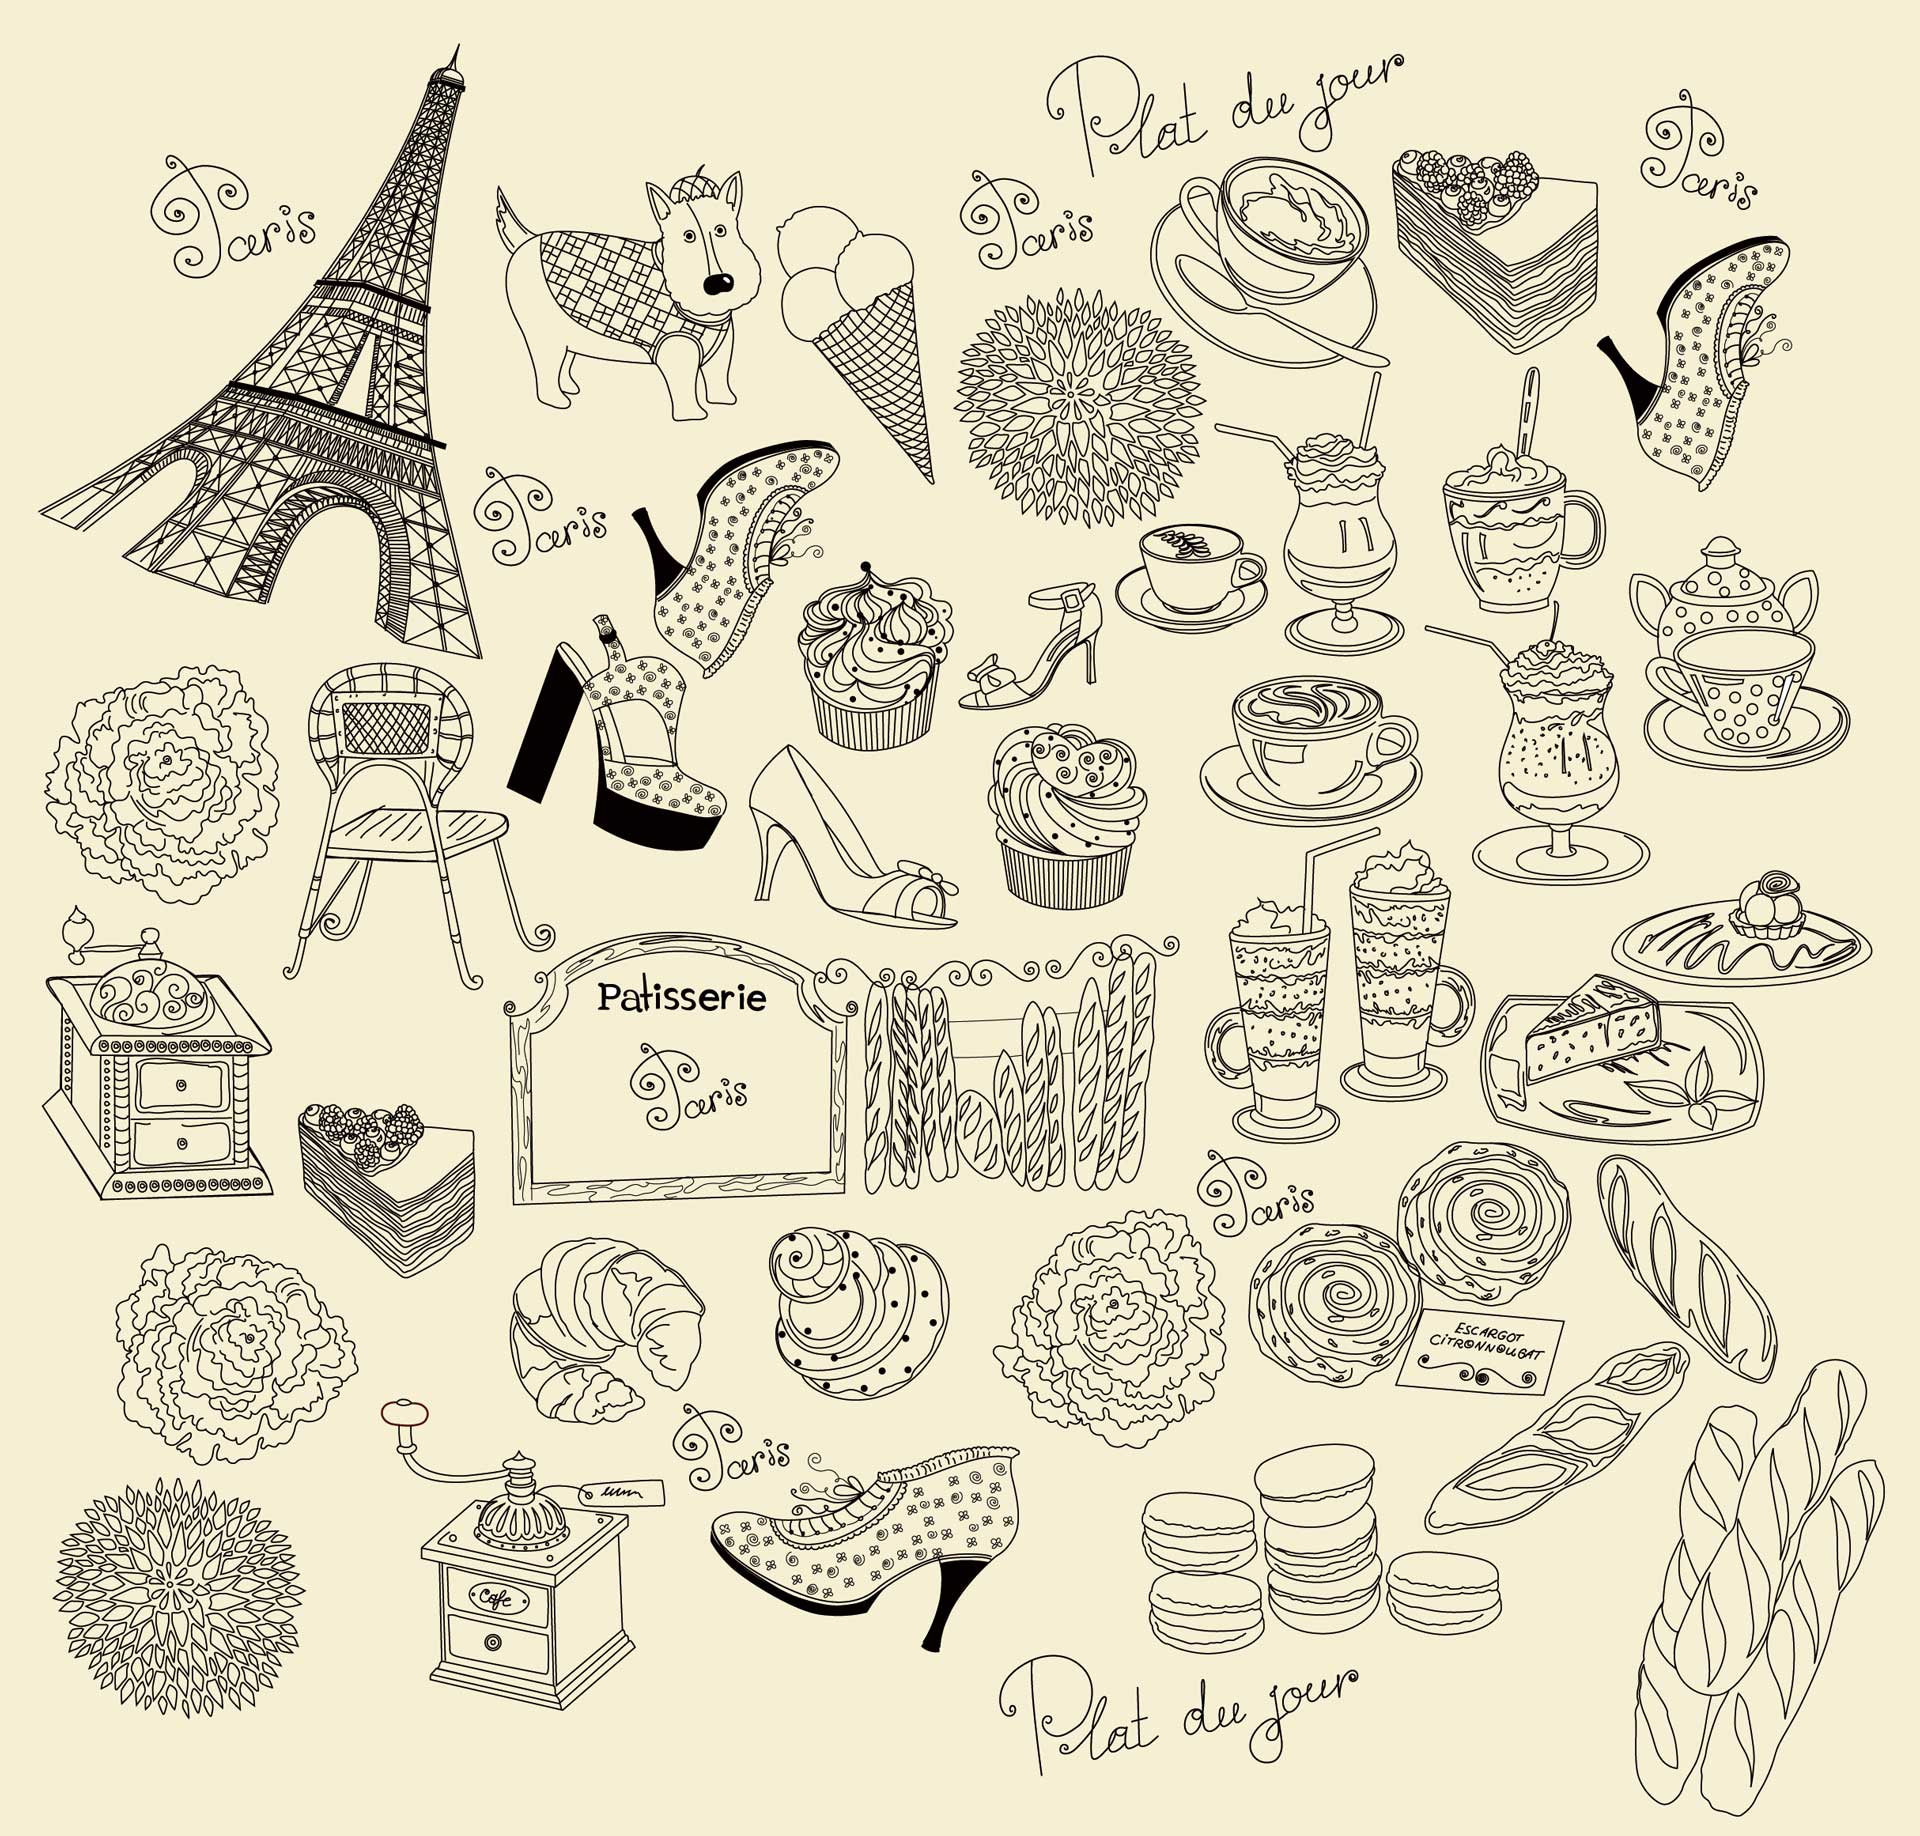 Plat du jour
Paris
Paris
Paris
Paris
Patisserie
Paris
Paris
ESCARGOT
CITRONNOUGAT
Paris
Cafe
Plat du jour